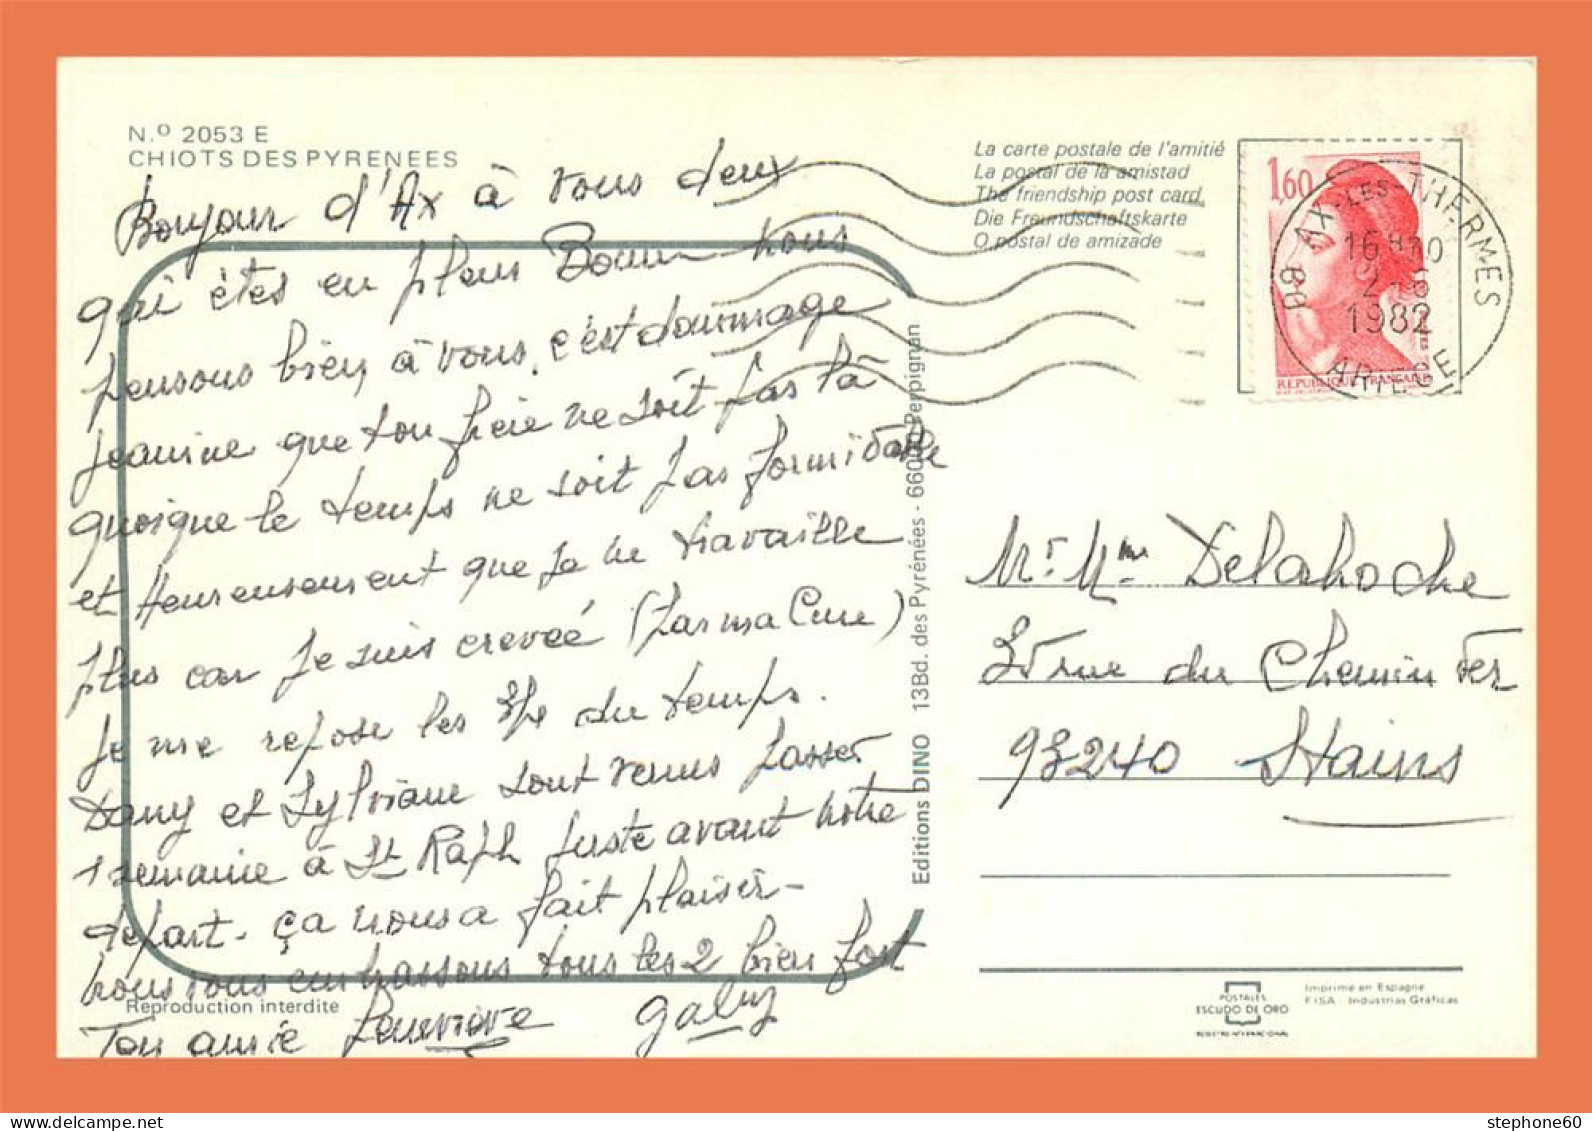 N.º 2053 E
CHIOTS DES PYRENEES
Bonjour d'Ax à vous deux
qui êtes en plein Boum nous
pensons bien à vous, c'est dommage
Jeanine que ton frère ne soit pas là
quoique le temps ne soit pas formidable
et Heureusement que je ne travaille
plus car je suis crevée (par ma Cure)
je me repose les du temps.
Dany et Sylviane sont venus passer
1 semaine à St Raph juste avant notre
depart - ça nous a fait plaisir -
nous vous embrassons tous les 2 bien fort
Ton amie Genevieve Gaby
Reproduction interdite
Editions DINO 13Bd. des Pyrénées - 66000 Perpignan
La carte postale de l'amitié
La postal de la amistad
The friendship post card
Die Freundschaftskarte
O postal de amizade
1,60
REPUBLIQUE FRANÇAISE
09 AX-LES-THERMES
16H30
2-6
1982
ARIEGE
Mr. Mme Delahoche
rue du Chemin Fer
93240 Stains
POSTALES
ESCUDO DE ORO
REGISTRO INTERNACIONAL
Imprimé en Espagne
FISA Industrias Gráficas
stephone60